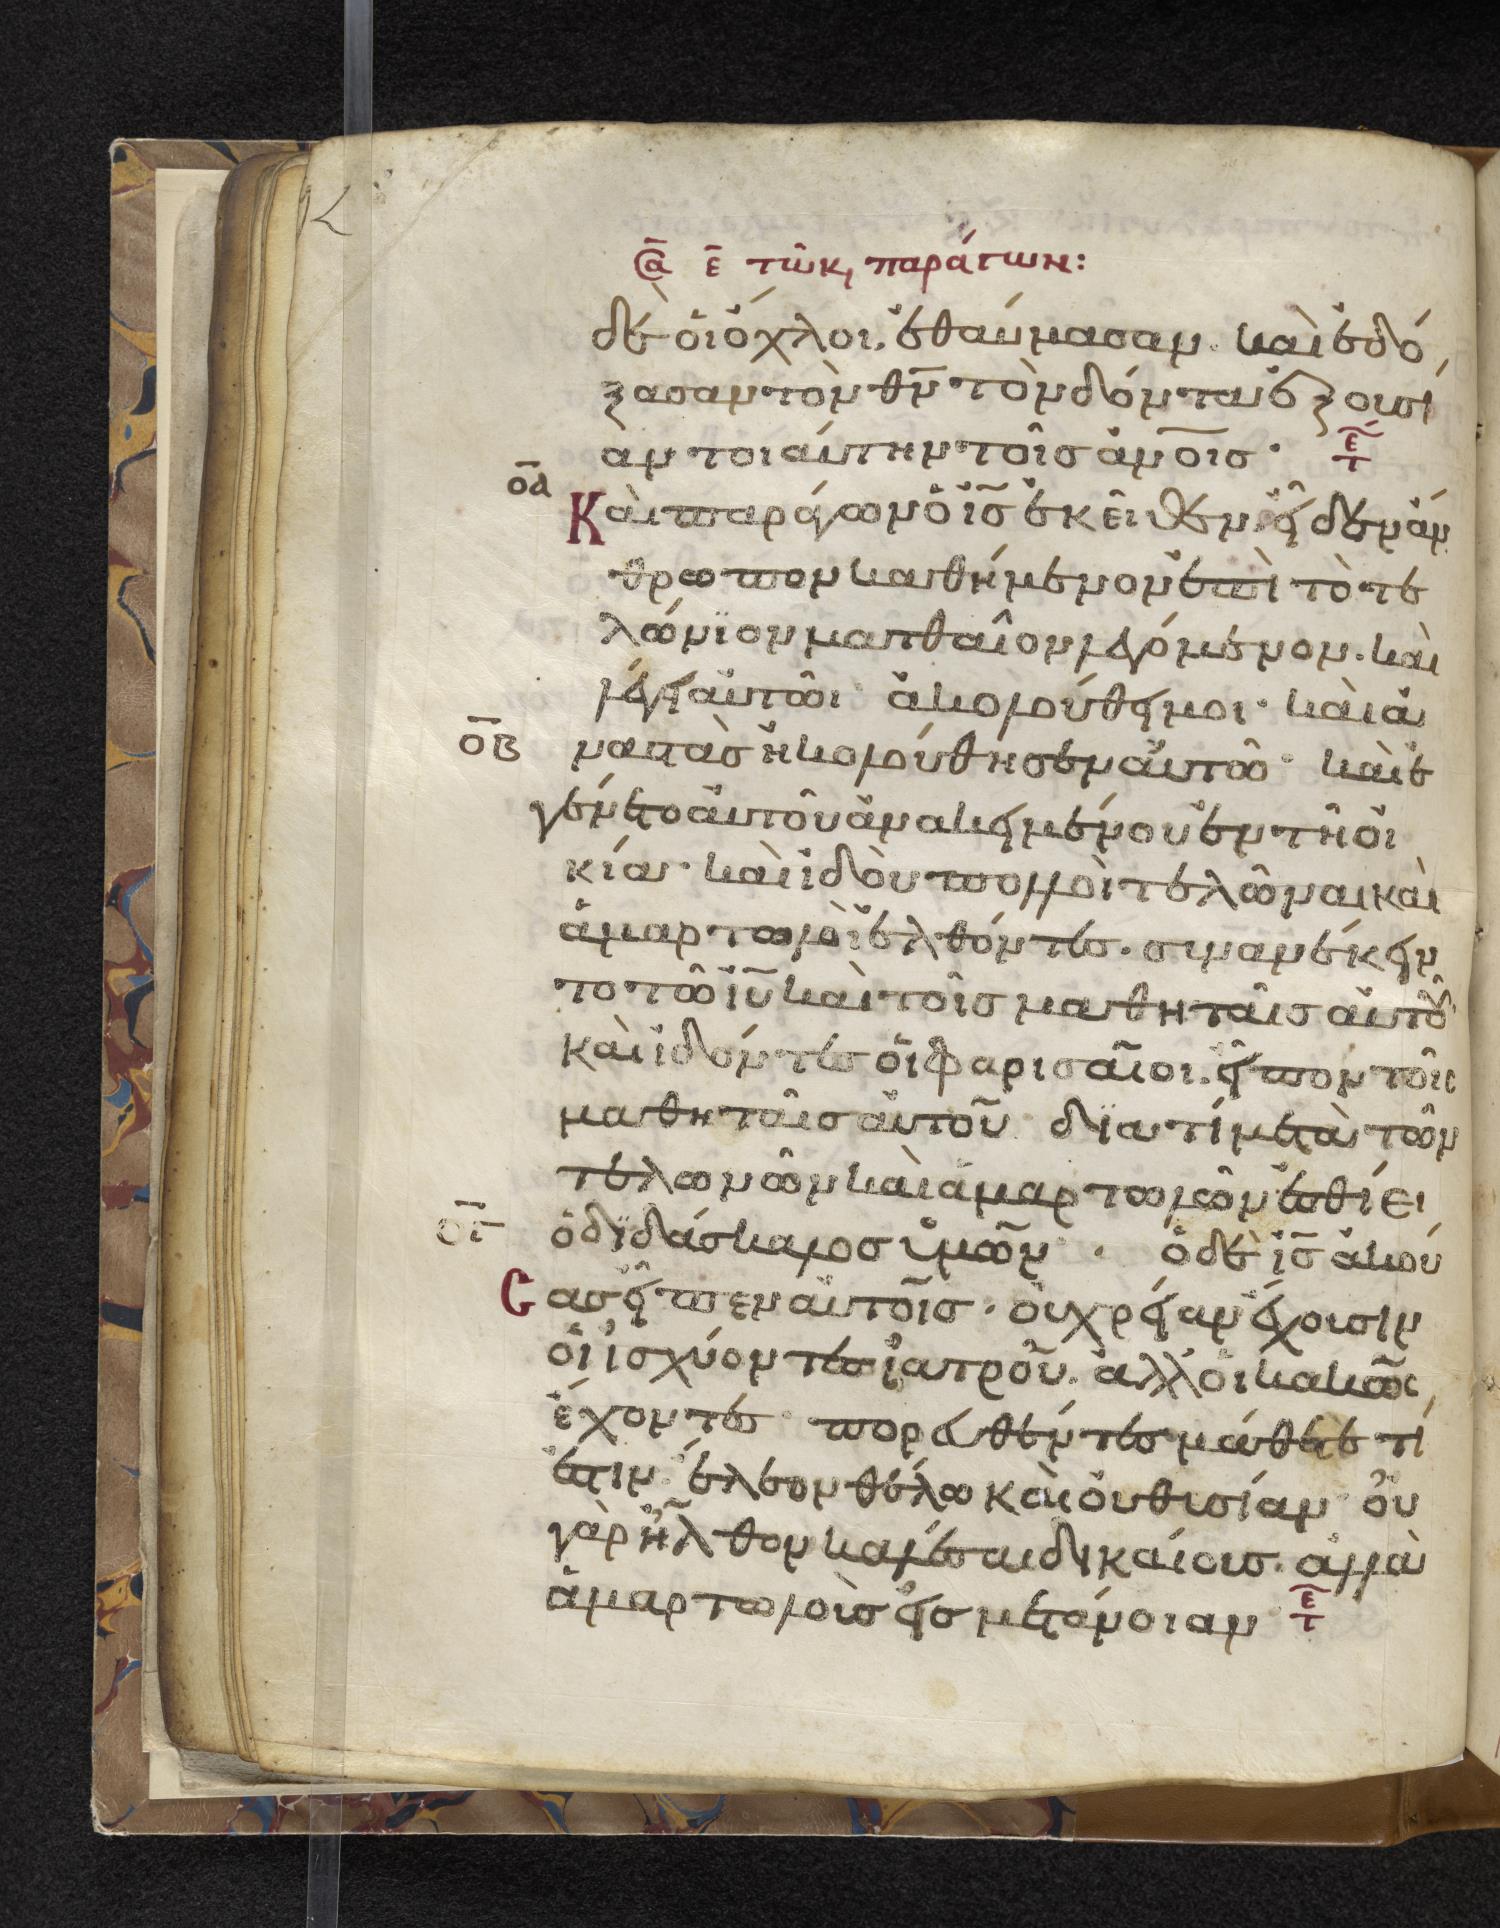 δὲ ὁι ὄχλοι. ἐθαύμασαν. καὶ ἐδό
ξασαν τὸν θν τὸν δόντα ἐξουσί
αν τοιαύτην τοῖσ ἀνοισ·
οα
Καὶ παράγων ὁ ισ ἐκεῖθεν εἶδεν ἄν
θρωπον καθήμενον ἐπὶ τὸ τε
λώνϊον ματθαῖον λεγόμενον. καὶ
λέγει αὐτῶι ἀκολούθει μοι· καὶ ἀ
οβ
ναστὰσ ἠκολούθησεν αὐτῶ· καὶ ἐ
γένετο αὐτοῦ ἀνακειμένου ἐν τῆ ὀι
κία· καὶ ἰδὸυ πολλοὶ τελῶναι καὶ
ἁμαρτωλοὶ ἐλθόντεσ. συνανέκειν
το τῶ ιυ καὶ τοῖσ μαθηταῖσ αὐτοῦ
καὶ ἰδόντεσ ὁι φαρισαῖοι. εἶπον τοῖσ
μαθηταῖσ αὐτοῦ δϊατί μετὰ τῶν
τελωνῶν καὶ ἁμαρτωλῶν ἐσθίει
ογ
ὁ διδάσκαλοσ ὑμῶν · ὁ δὲ ισ ἀκού
σασ εἶπεν αὐτοῖσ· ὀυ χρείαν ἔχουσιν
ὁι ἰσχύοντεσ ἰατροῦ. ἀλλ ὁι κακῶσ
ἔχοντεσ πορευθέντεσ μάθετε τί
ἐστιν ἔλεον θέλω καὶ ὀυ θυσίαν ὀυ
γὰρ ἦλθον καλέσαι δικαίουσ. ἀλλὰ
ἁμαρτωλοὺσ εἰσ μετάνοιαν